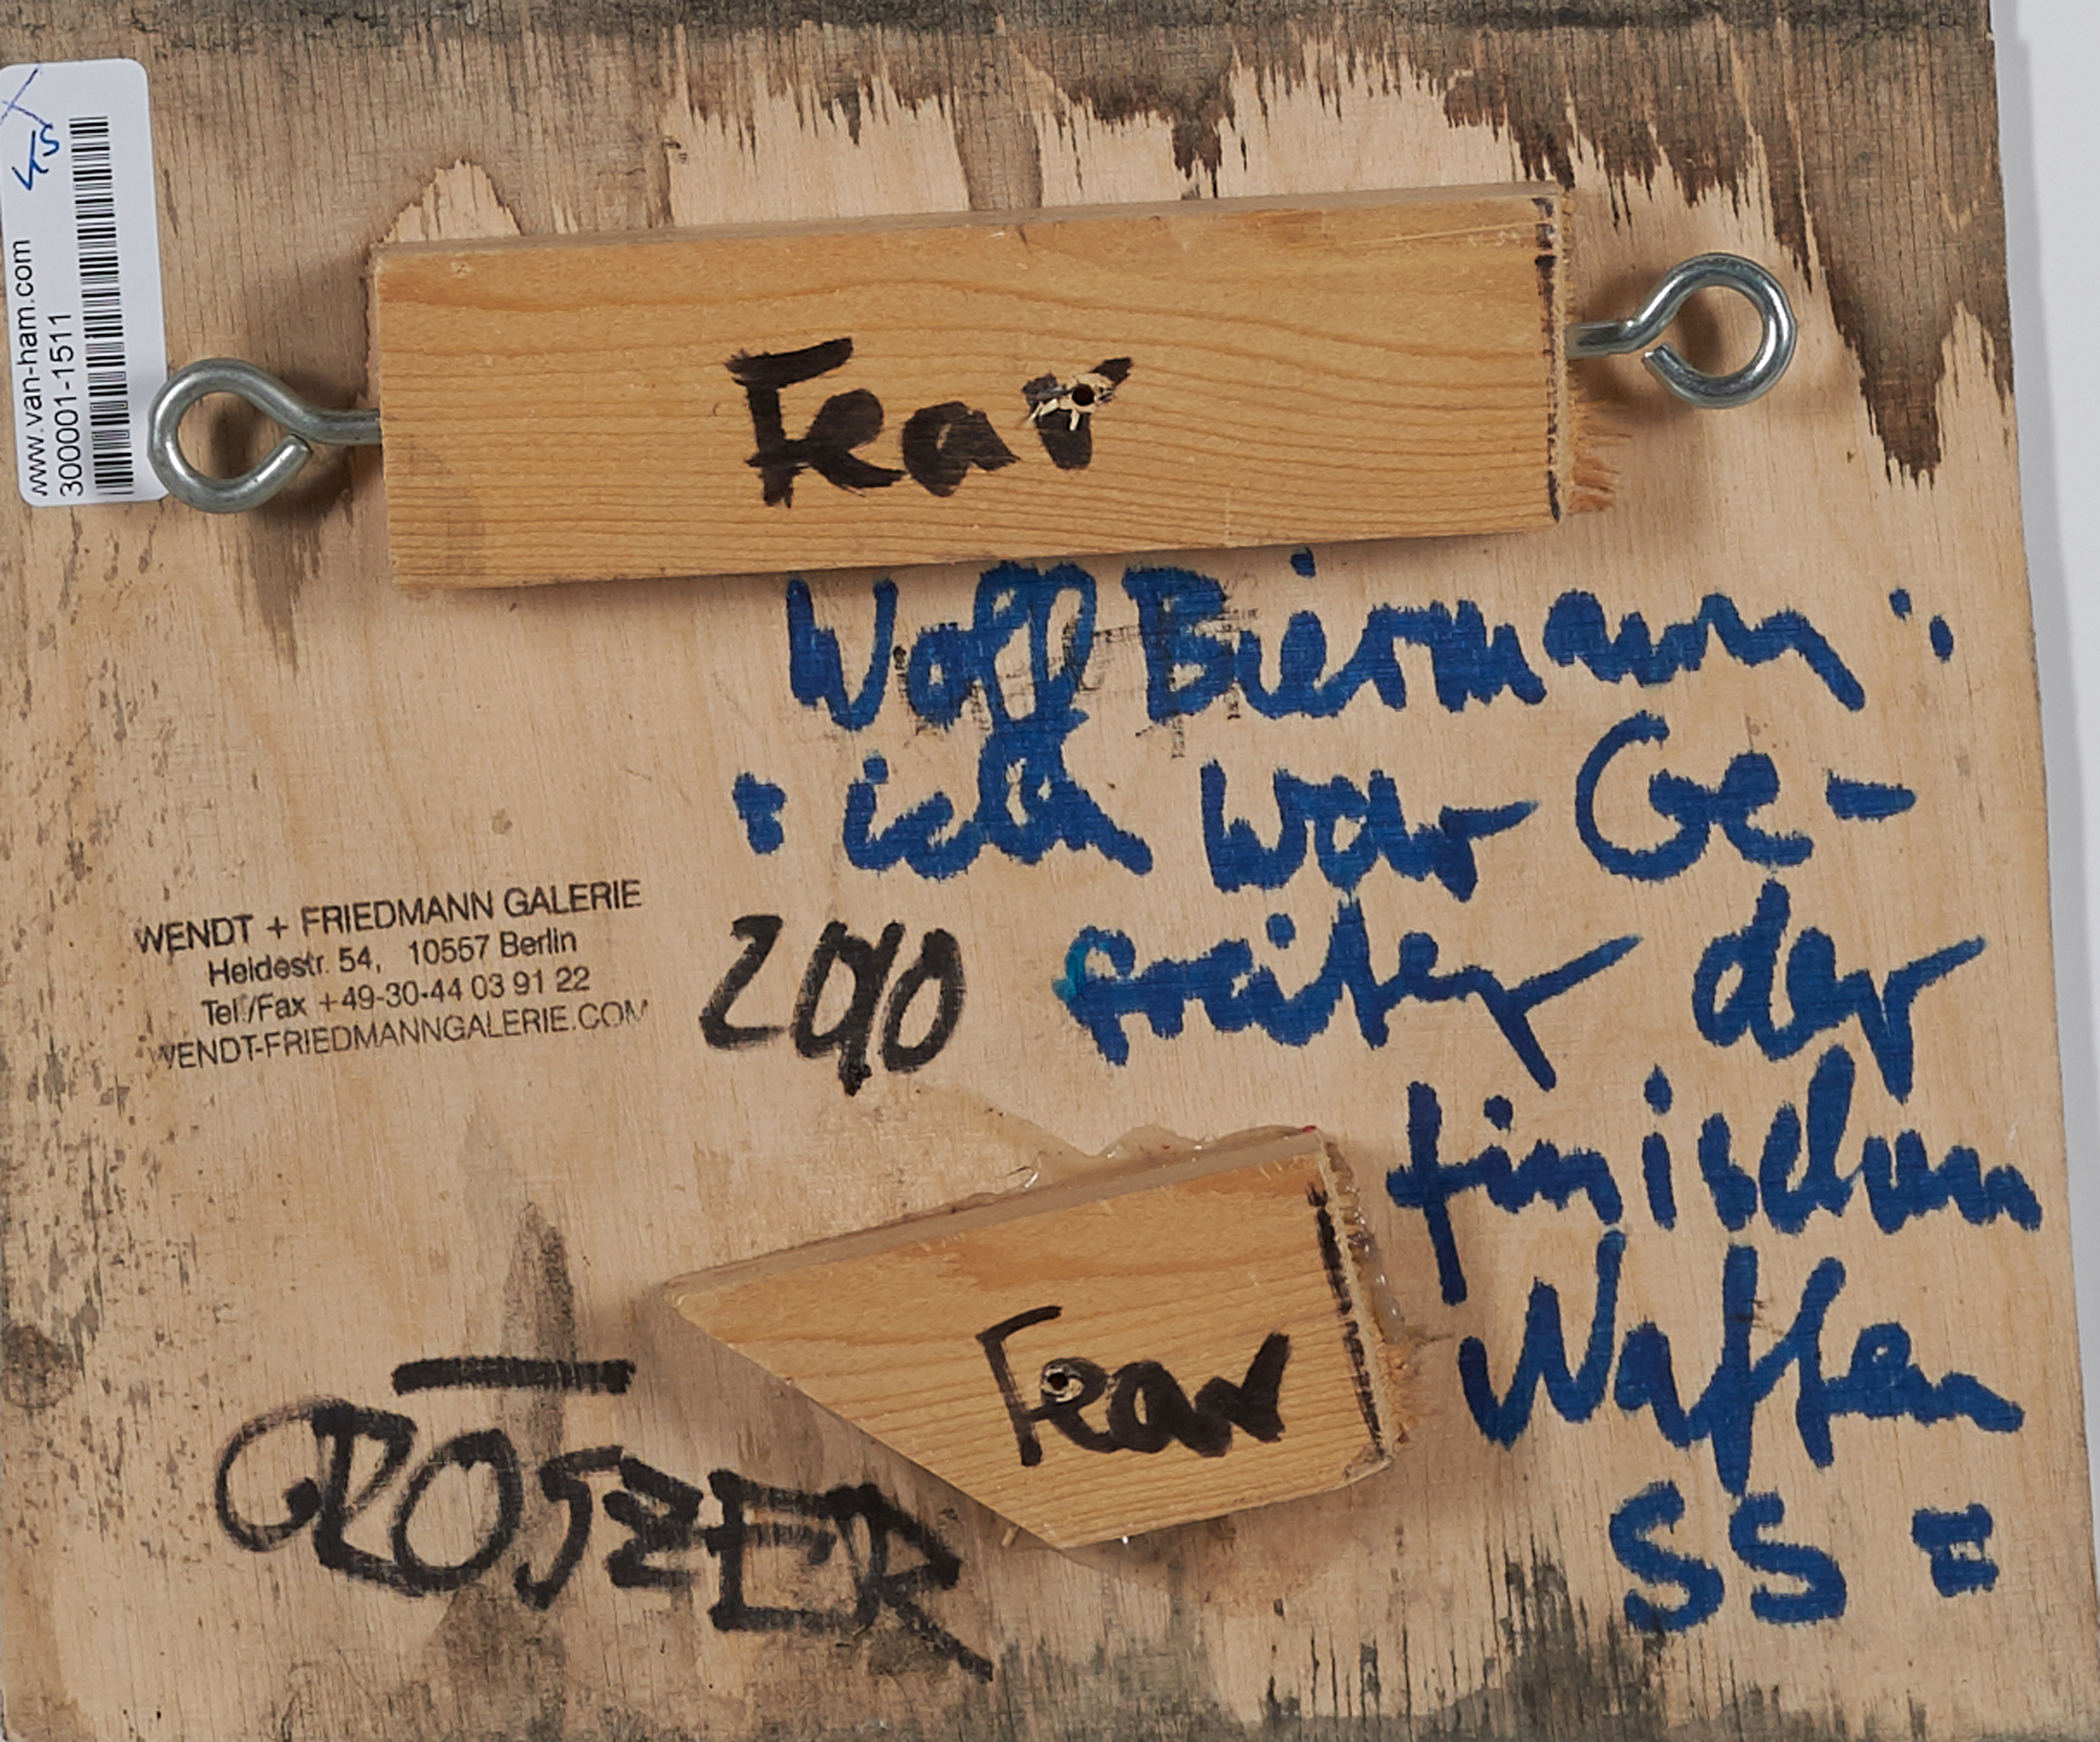 45
www.van-ham.com
300001-1511
Fear
Wolf Biermann :
: ich war Ge-
freiter der
finnischen
Waffen
SS =
WENDT + FRIEDMANN GALERIE
Heidestr. 54, 10557 Berlin
Tel./Fax +49-30-44 03 91 22
WENDT-FRIEDMANNGALERIE.COM
Fear